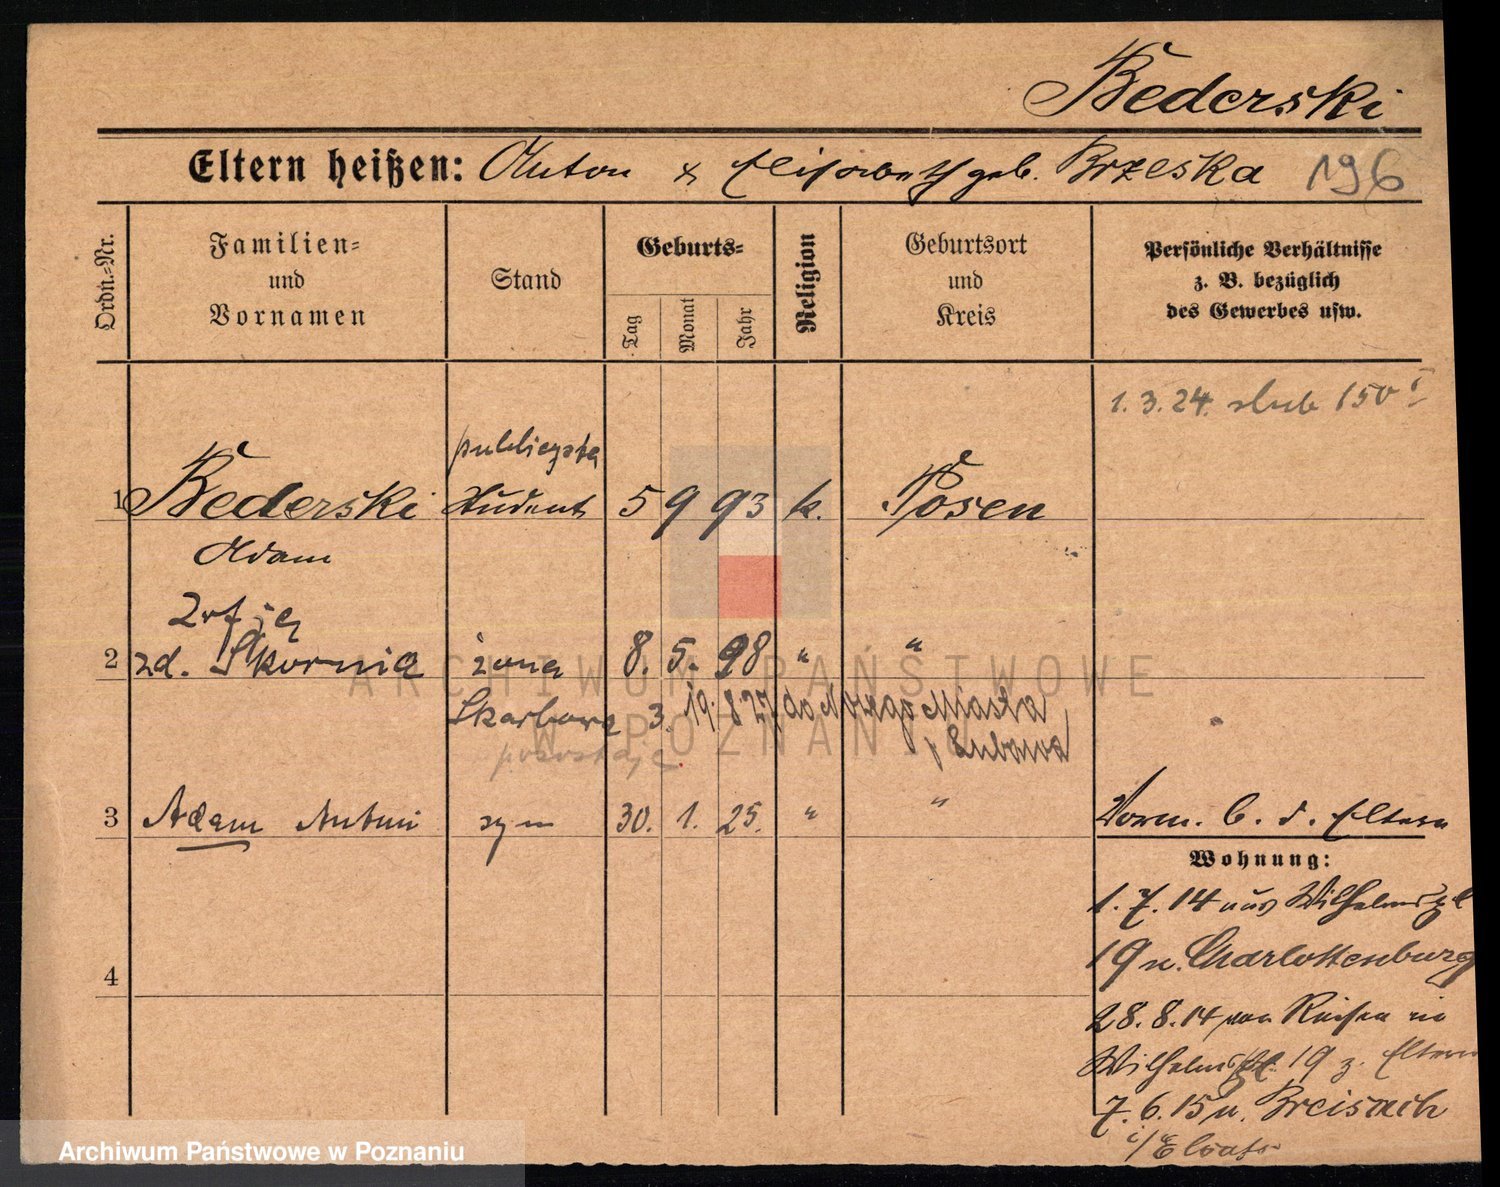 Bederski
Eltern heißen: Anton & Elisabeth geb. Brzeska 196
Ordn.-Nr.
Familien-
und
Vornamen
Stand
Geburts-
Tag
Monat
Jahr
Religion
Geburtsort
und
Kreis
Persönliche Verhältnisse
z. B. bezüglich
des Gewerbes usw.
1. 3. 24. slub 150
publicysta
1 Bederski Student 5 9 93 k. Posen
Adam
Zofja
2 zd. Skórnia żona 8. 5. 98 " "
Skarbowa 3. 19. 8 27 do Nowego Miasta
/ Lubawa
pozostaje
3 Adam Antoni syn 30. 1. 25. " "
Worm. b. d. Eltern
Wohnung:
1. 7. 14 aus Wilhelmspl
19 n. Charlottenburg
4
28. 8. 14 von Reisen in
Wilhelmspl. 19 z. Eltern
7. 6. 15 n. Breisach
i/Elsass
ARCHIWUM PAŃSTWOWE
W POZNANIU
Archiwum Państwowe w Poznaniu